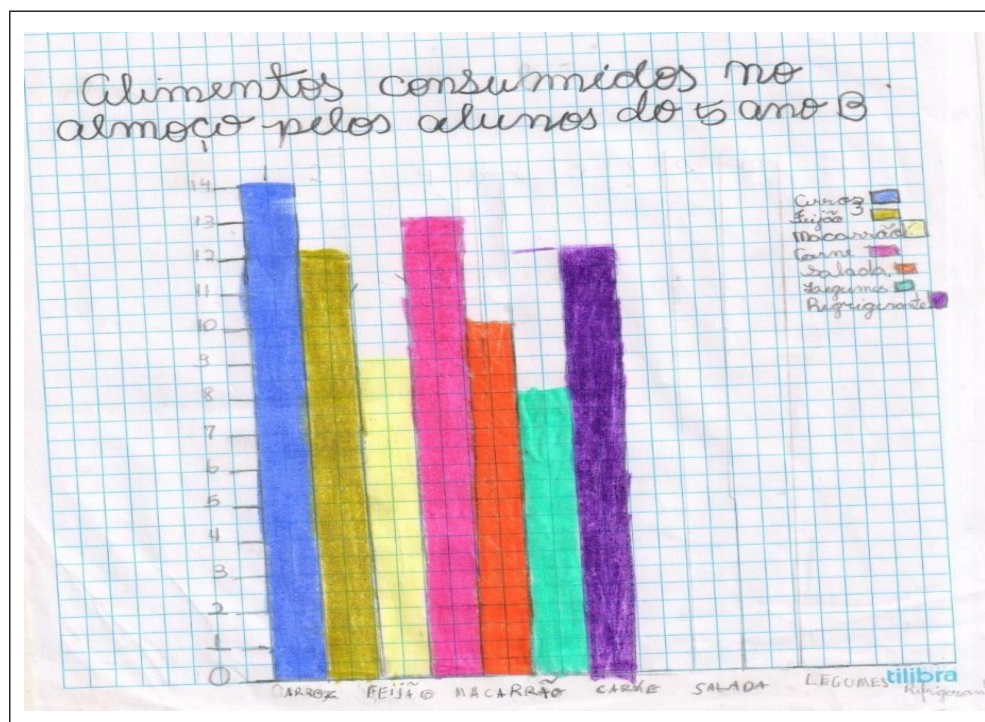 Alimentos consumidos no
almoço pelos alunos do 5 ano B
14
13
12
11
10
9
8
7
6
5
4
3
2
1
0
Arroz
Feijão 3
Macarrão
Carne
Salada
Legumes
Rigrigerante
ARROZ FEIJÃO MACARRÃO CARNE SALADA LEGUMES
tilibra
Refrigeran